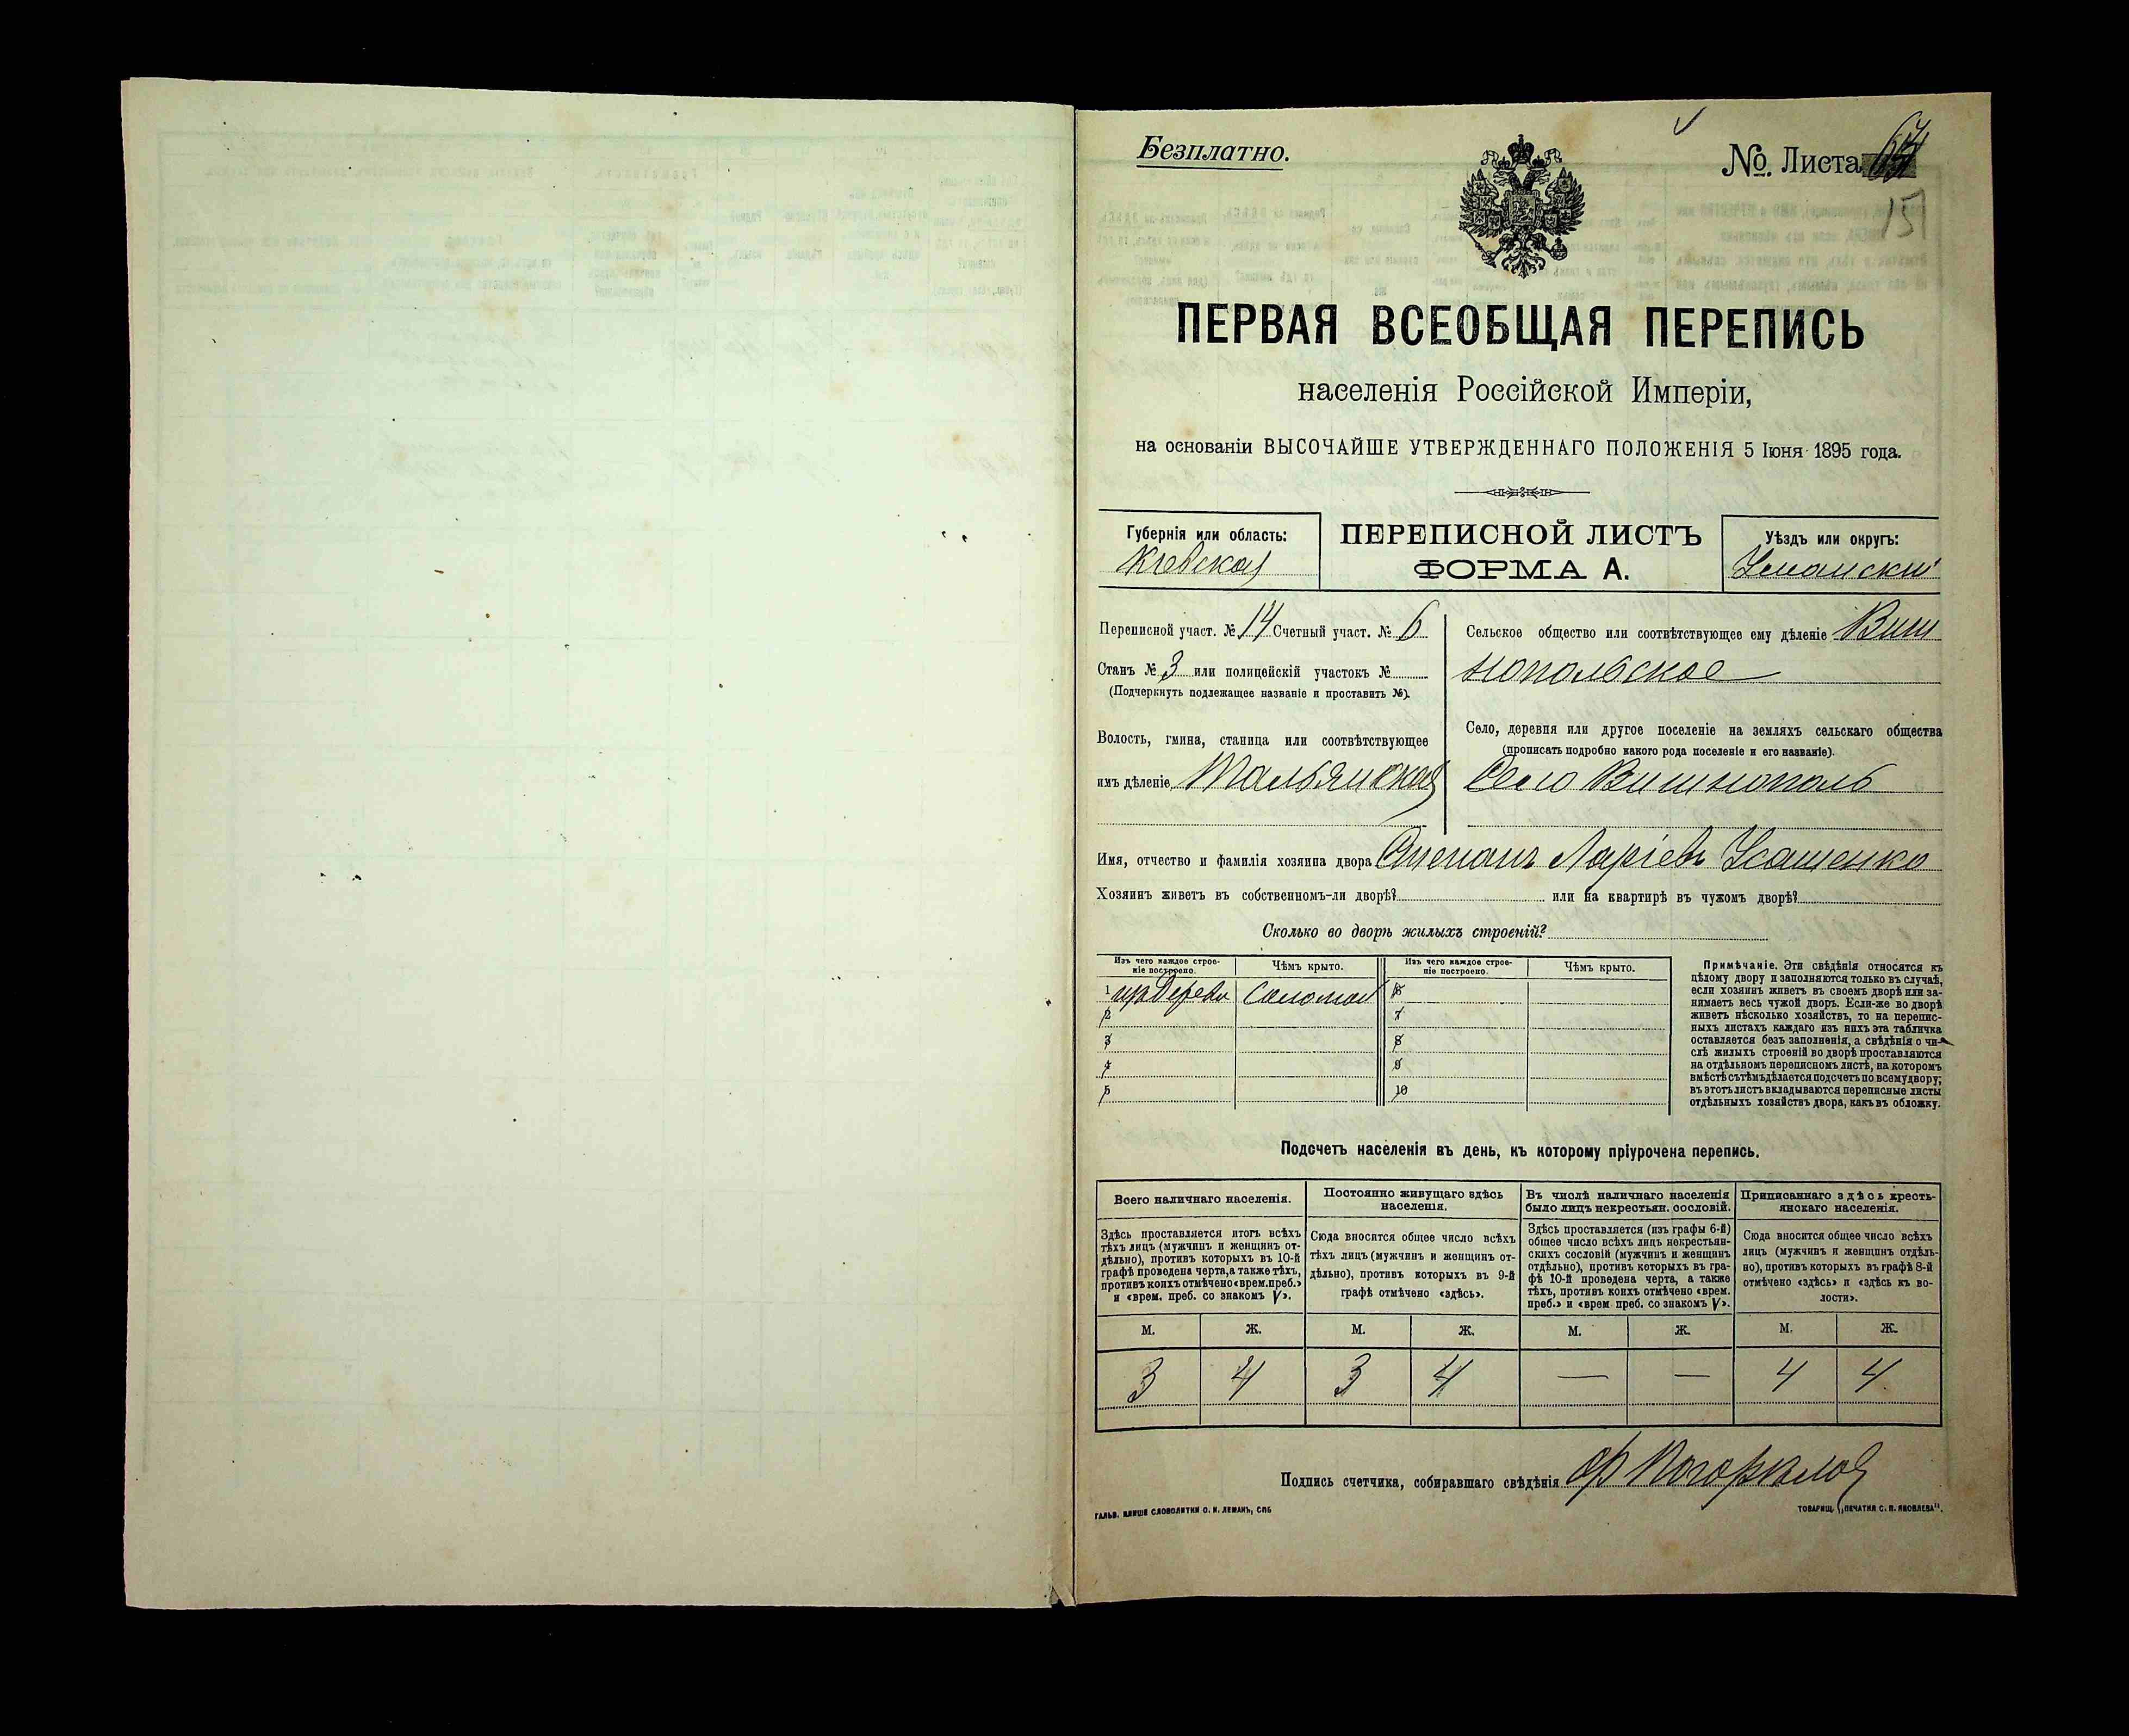 Безплатно.
№ Листа
151
ПЕРВАЯ ВСЕОБЩАЯ ПЕРЕПИСЬ
населенія Россійской Имперіи,
на основаніи ВЫСОЧАЙШЕ УТВЕРЖДЕННАГО ПОЛОЖЕНІЯ 5 Іюня 1895 года.
Губернія или область:
Кіевская
ПЕРЕПИСНОЙ ЛИСТЪ
ФОРМА А.
Уѣздъ или округъ:
Уманскій
Переписной участ. № 14 Счетный участ. № 6
Станъ № 3 или полицейскій участокъ №
(Подчеркнуть подлежащее названіе и проставить №).
Волость, гмина, станица или соотвѣтствующее
имъ дѣленіе Тальянская
Сельское общество или соотвѣтствующее ему дѣленіе Виш
нопольское
Село, деревня или другое поселеніе на земляхъ сельскаго общества
(прописать подробно какого рода поселеніе и его названіе).
Село Вишнополь
Имя, отчество и фамилія хозяина двора Степанъ Ларіевъ Усатенко
Хозяинъ живетъ въ собственномъ-ли дворѣ? или на квартирѣ въ чужомъ дворѣ?
Сколько во дворѣ жилыхъ строеній?
Изъ чего каждое строе-
ніе построено.
Чѣмъ крыто.
Изъ чего каждое строе-
ніе построено.
Чѣмъ крыто.
1 изъ дерева соломой 6
2 7
3 8
4 9
5 10
Примѣчаніе. Эти свѣдѣнія относятся къ
цѣлому двору и заполняются только въ случаѣ,
если хозяинъ живетъ въ своемъ дворѣ или за-
нимаетъ весь чужой дворъ. Если-же во дворѣ
живетъ нѣсколько хозяйствъ, то на перепис-
ныхъ листахъ каждаго изъ нихъ эта табличка
оставляется безъ заполненія, а свѣдѣнія о чи-
слѣ жилыхъ строеній во дворѣ проставляются
на отдѣльномъ переписномъ листѣ, на которомъ
вмѣстѣ съ тѣмъ дѣлается подсчетъ по всему двору;
въ этотъ листъ вкладываются переписные листы
отдѣльныхъ хозяйствъ двора, какъ въ обложку.
Подсчетъ населенія въ день, къ которому пріурочена перепись.
Всего наличнаго населенія.
Здѣсь проставляется итогъ всѣхъ
тѣхъ лицъ (мужчинъ и женщинъ от-
дѣльно), противъ которыхъ въ 10-й
графѣ проведена черта, а также тѣхъ,
противъ коихъ отмѣчено «врем. преб.»
и «врем. преб. со знакомъ V».
Постоянно живущаго здѣсь
населенія.
Сюда вносится общее число всѣхъ
тѣхъ лицъ (мужчинъ и женщинъ от-
дѣльно), противъ которыхъ въ 9-й
графѣ отмѣчено «здѣсь».
Въ числѣ наличнаго населенія
было лицъ некрестьян. сословій.
Здѣсь проставляется (изъ графы 6-й)
общее число всѣхъ лицъ некрестьян-
скихъ сословій (мужчинъ и женщинъ
отдѣльно), противъ которыхъ въ гра-
фѣ 10-й проведена черта, а также
тѣхъ, противъ коихъ отмѣчено «врем.
преб.» и «врем преб. со знакомъ V».
Приписаннаго здѣсь кресть-
янскаго населенія.
Сюда вносится общее число всѣхъ
лицъ (мужчинъ и женщинъ отдѣль-
но), противъ которыхъ въ графѣ 8-й
отмѣчено «здѣсь» и «здѣсь къ во-
лости».
М. Ж. М. Ж. М. Ж. М. Ж.
3 4 3 4 — — 4 4
Подпись счетчика, собиравшаго свѣдѣнія
ГАЛЬВ. КЛИШЕ СЛОВОЛИТНИ О. И. ЛЕМАНЪ, СПБ
ТОВАРИЩ. „ПЕЧАТНЯ С. П. ЯКОВЛЕВА“.